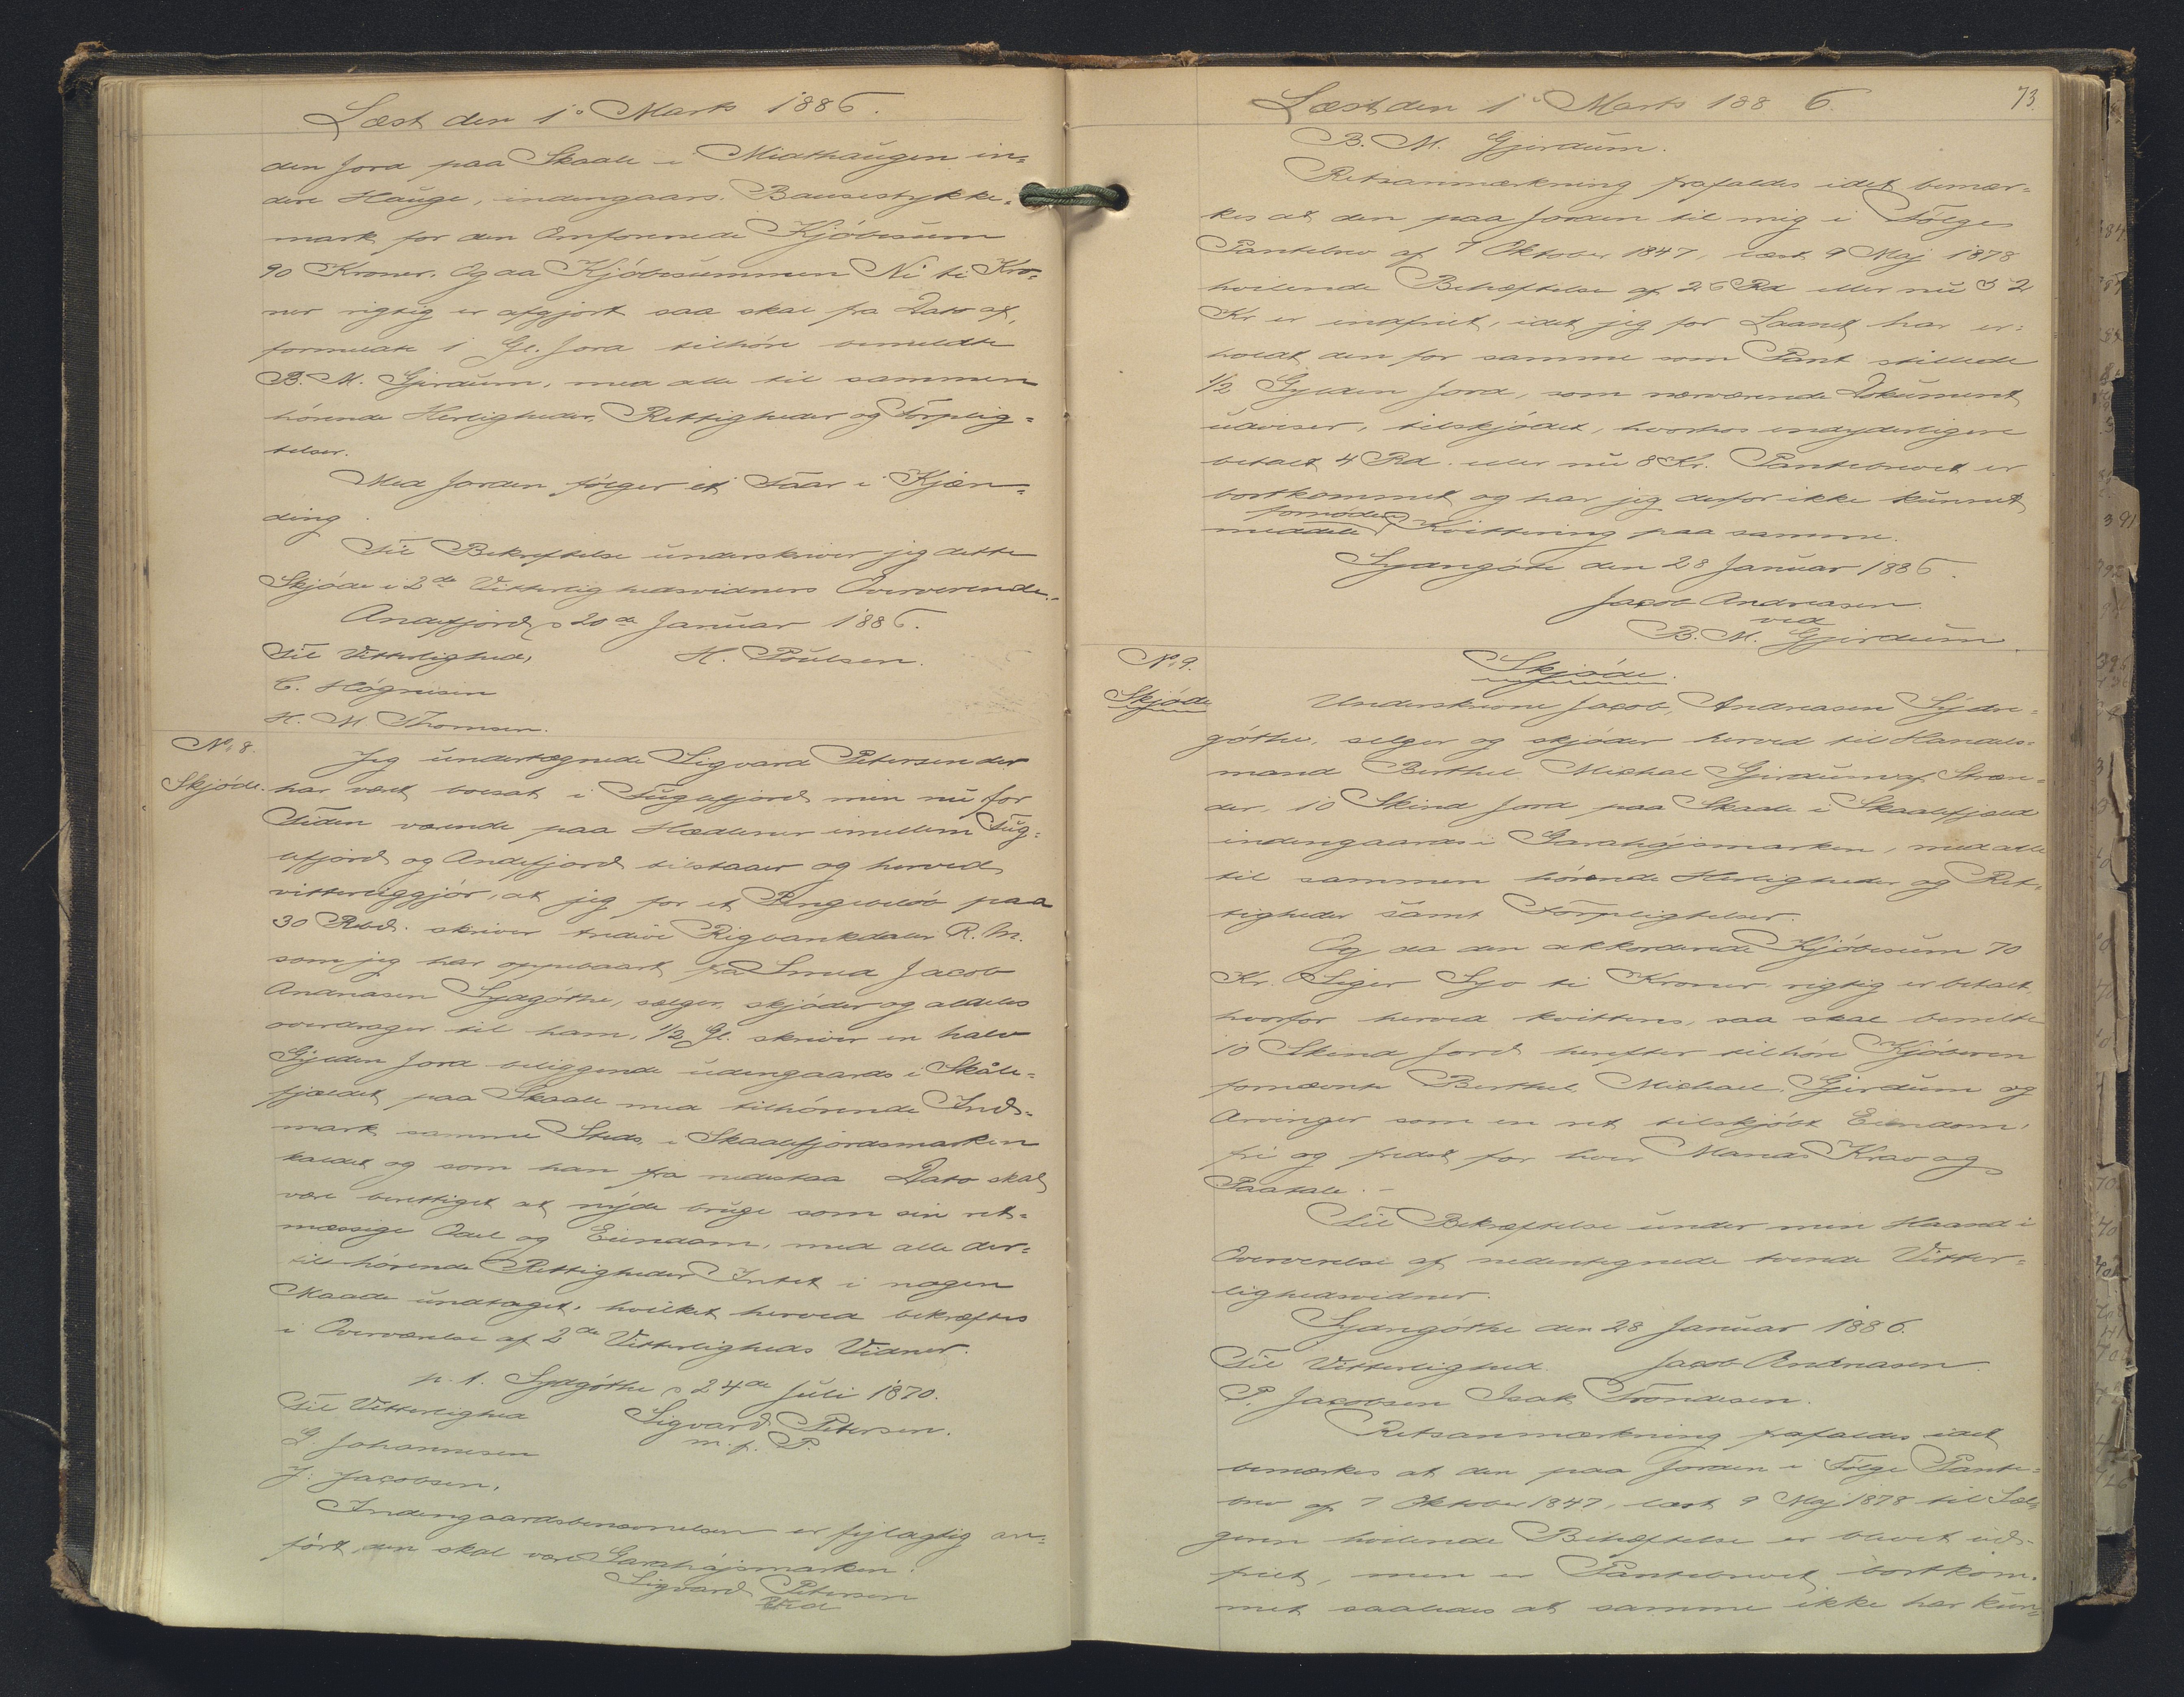 Læst den 1ᵒ Marts 1886.
den Jord paa Skaale i Miathaugen in=
dere Hauge, indengaars. Bausestykke=
mark for den Omforenede Kjöbesum
90 Kroner. Og da Kjöbesummen Ni ti Kro=
ner rigtig er afgjort saa skal fra Dato af,
formeldte 1 Gl. Jord tilhöre bemeldte
B. M. Gjirdum, med alle til sammen
hörende Herligheder, Rettigheder og Forplig=
telser.
Med Jorden fölger et Faar i Kjæn=
ding.
Til Bekræftelse underskriver jeg dette
Skjöde i 2de Vitterlighedsvidners Oververende.
Andefjord, d 20de Januar 1886.
Til Vitterlighed, H. Poulsen.
C. Högnisen
H. M Thomsen.
No. 8. Jeg undertegnede Sigvard Petersen der
Skjöde. har været boesat i Fuglefjord men nu for
Tiden værende paa Hæderne imellem Fug=
lefjord og Andefjord tilstaaer og herved
vitterliggjör, at jeg for et Pengebelöb paa
30 Rbd. skriver tredive Rigbankdaler R. M.
som jeg har oppebaaret fra Smed Jacob
Andreasen Sydgöthe, sælger, skjöder og aldeles
overdrager til ham, 1/2 Gl. skriver en halv
Gylden Jord beliggende udengaards i Skåle=
fjældet paa Skaale med tilhörende Ind=
mark samme Steds, i Skaalefjordsmarken
kaldet og som han fra nedestaa Dato skal
være berettiget at nyde bruge som sin ret=
mæssige Odel og Eiendom, med alle der=
til hörende Rettigheder Intet i nogen
Maade undtaget, hvilket herved bekræftes
i Overværelse af 2de Vitterligheds Vidner.
p. t. Sydgöthe d 24de Juli 1870.
Til Vitterlighed Sigvard Petersen.
G. Johannesen m. f. P.
J. Jacobsen.
Indengaardsbenævnelsen er fejlagtig an=
fört, den skal være Garahöjsmarken.
Sigvard Petersen
Ved
Læst den 1ᵒ Marts 1886. 73.
B. M. Gjirdum.
Retsanmærkning frafaldes idet bemær=
kes at den paa Jorden til mig i Fölge
Pantebrev af 7 Oktober 1847, læst 9 Maj 1878
hvilende Behæftelse af 26 Rd eller nu 52
Kr er indfriet, idet jeg for Laanet har er=
holdt den for samme som Pant stillede
1/2 Gylden Jord, som nærværende Dokument
udviser, tilskjödet, hvorhos endyderligere
betalt 4 Rd. eller nu 8 Kr. Pantebrevet er
bortkommet og har jeg derfor ikke kunnet
fornöden
meddele Kvittering paa samme.
Syangöte den 28 Januar 1886.
Jacob Andreasen
ved
B. M. Gjirdum.
No. 9. Skjöde.
Skjöde Underskrevne Jacob, Andreasen Sydre=
göthe, selger og skjöder herved til Handels=
mand Berthel Michal Gjirdum af Stræn=
der, 10 Skind Jord paa Skaale i Skaalefjæld
indengaards i Garahöjsmarken, med alle
til sammen hörende Herligheder og Ret=
tigheder samt Forpligtelser.
Og da den akkorderede Kjöbesum 70
Kr. Siger Syv ti Kroner, rigtig er betalt,
hvorfor herved kvitteres, saa skal bemeldte
10 Skind Jord herefter tilhöre Kjöberen
fornævnte Berthel Michael Gjirdum og
Arvinger som en ret tilskjödt Eiendom,
fri og fredet for hver Mands Krav og
Paatale. -
Til Bekræftelse under min Haand i
Oververelse af nedentegnede tvende Vitter=
lighedsvidner.
Syangöthe den 28 Januar 1886.
Til Vitterlighed. Jacob Andreasen
P. Jacobsen Isak Trondesen.
Retsanmærkning frafaldes idet
bemærkes at den paa Jorden i Fölge Pante=
brev af 7 Oktober 1847, læst 9 Maj 1878 til Sæl=
geren hvilende Behæftelse er blevet ind=
friet, men er Pantebrevet bortkom=
met saaledes at samme ikke har kun=